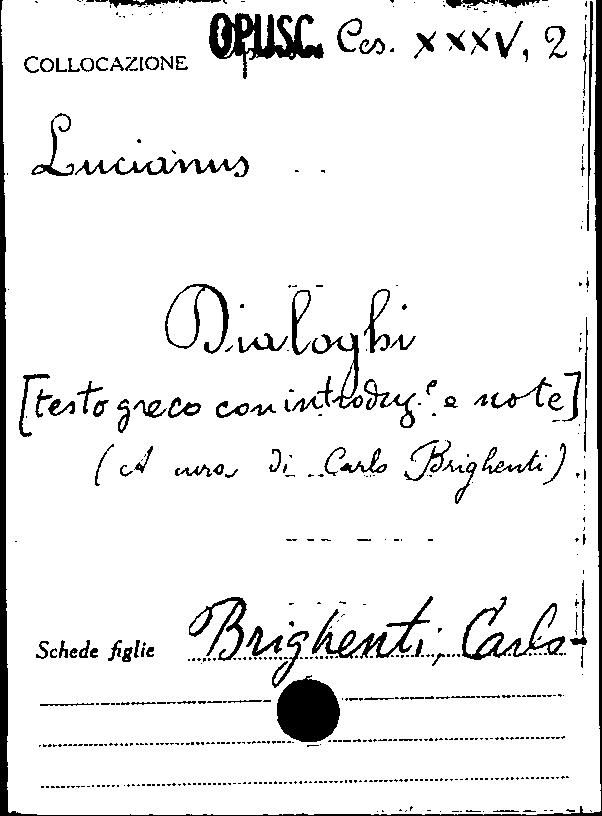 OPUSC. Ces. XXXV, 2
COLLOCAZIONE
Lucianus
Dialoghi
[testo greco con introduz.e e note]
(A cura di Carlo Brighenti)
Schede figlie Brighenti, Carlo